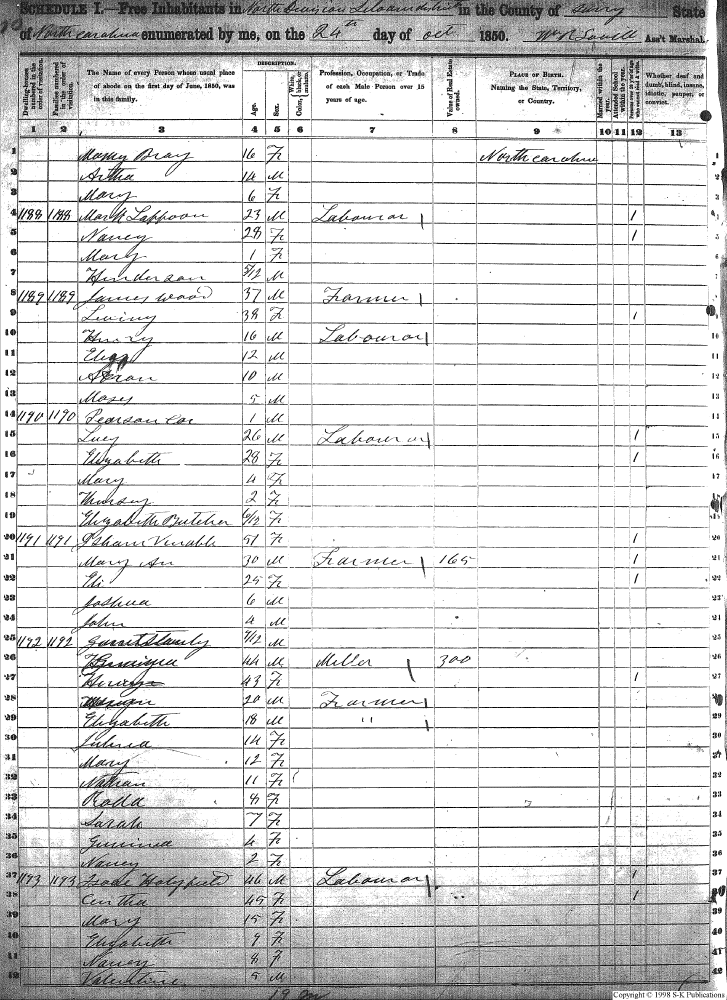 SCHEDULE I.—Free Inhabitants in North Division Siloam district in the County of Surry State
of North carolina enumerated by me, on the 24th day of Oct 1850. Wm R Lovill Ass't Marshal.
Dwelling-houses numbered in the order of visitation.
Families numbered in the order of visitation.
The Name of every Person whose usual place of abode on the first day of June, 1850, was in this family.
DESCRIPTION.
Age.
Sex.
Color, White, black, or mulatto.
Profession, Occupation, or Trade of each Male Person over 15 years of age.
Value of Real Estate owned.
PLACE OF BIRTH. Naming the State, Territory, or Country.
Married within the year.
Attended School within the year.
Persons over 20 y'rs of age who cannot read & write.
Whether deaf and dumb, blind, insane, idiotic, pauper, or convict.
1 2 3 4 5 6 7 8 9 10 11 12 13
1 Bray 16 F North carolina 1
2 Artha 14 M
3 Mary 6 F
4 1188 1188 Mark Lappoon 23 M Labourar 1
5 Nancy 28 F 1
6 Mary 1 F
7 Henderson 5/12 M
8 1189 1189 James Wood 37 M Farmer
9 Leviny 38 F 1
10 Henry 16 M Labourar
11 12 M
12 Aaron 10 M
13 Moses 5 M
14 1190 1190 Pearson Coe 1 M
15 Lucy 26 M Labourar 1
16 Elizabeth 28 F 1
17 Mary 4 F
18 2 F
19 Elizabeth Butcher 6/12 F
20 1191 1191 Isham Venable 51 F 1
21 Mary An 30 M Farmer 165 1
22 Eli 25 F 1
23 Joshua 6 M
24 John 4 M
25 1192 1192 7/12 M
26 44 M Miller 300
27 43 F 1
28 20 M Farmer
29 Elizabeth 18 M "
30 14 F
31 Mary 12 F
32 Nathan 11 F
33 8 F
34 Sarah 7 F
35 4 F
36 Nancy 2 F
37 1193 1193 Isaac Holyfield 46 M Labourar 1
38 45 F 1
39 Mary 15 F
40 Elizabeth 9 F
41 Nancy 8 F
42 Valentine 5 M
Copyright © 1998 S-K Publications